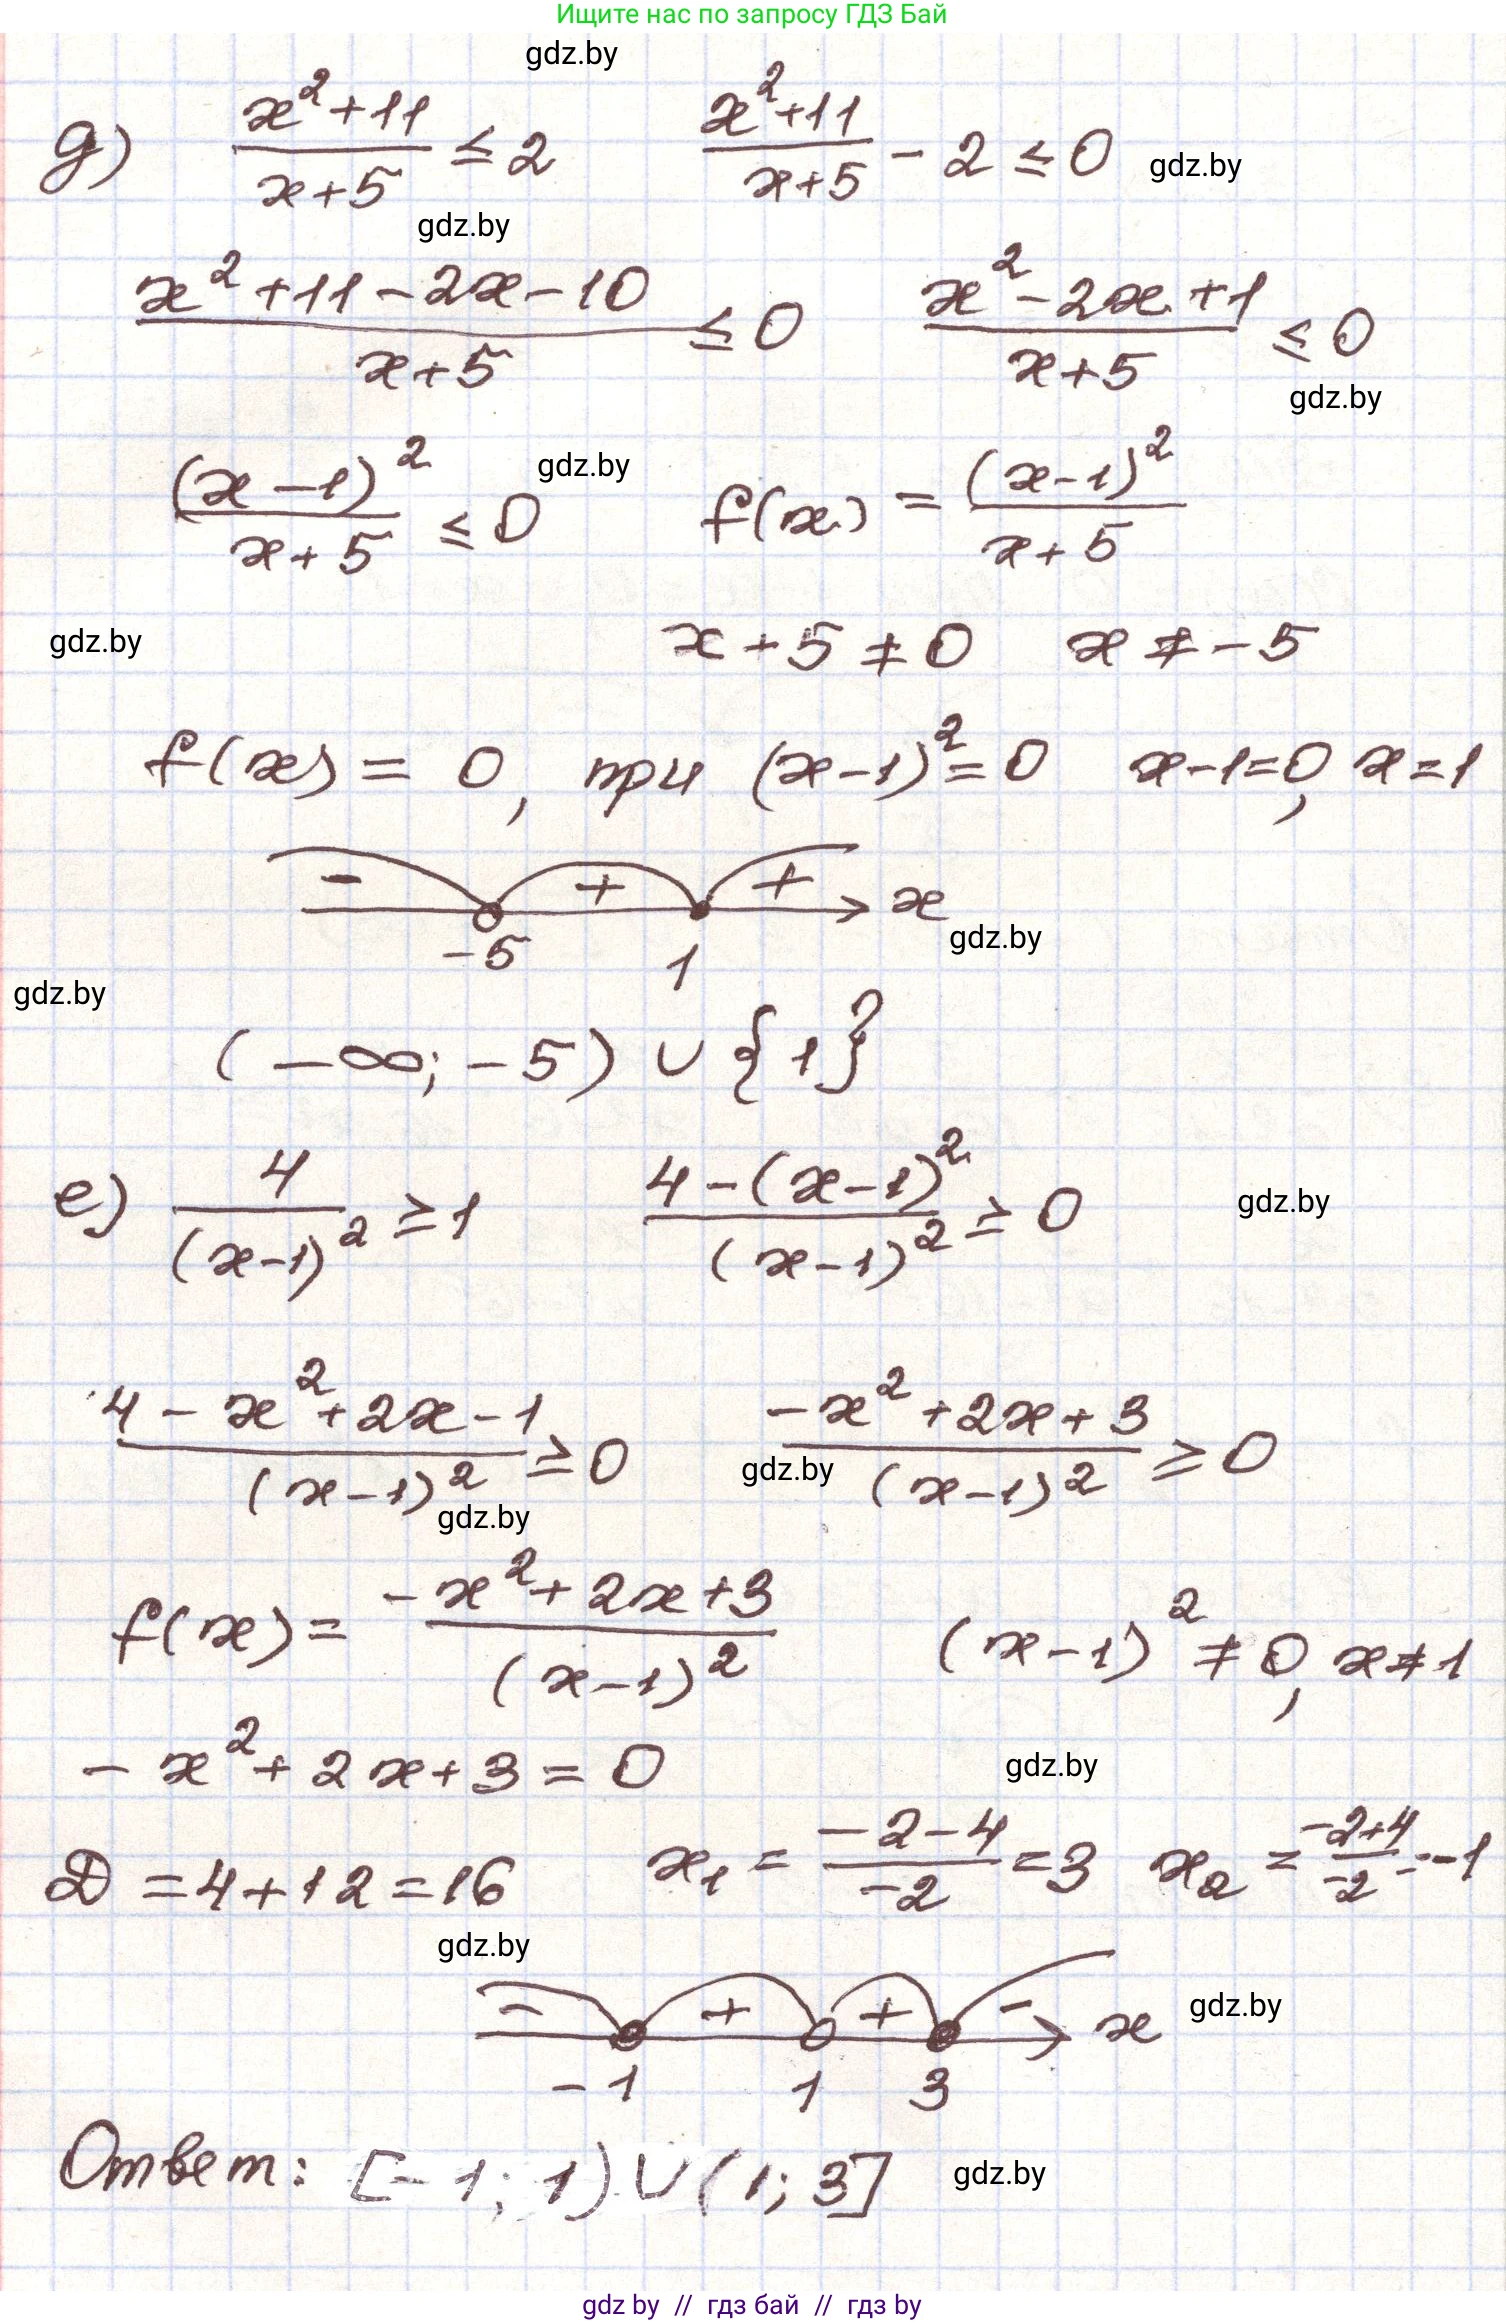 Ищите нас по запросу ГДЗ Бай
gdz.by
д) (x²+11)/(x+5) ≤ 2   (x²+11)/(x+5) - 2 ≤ 0
gdz.by
gdz.by
(x²+11-2x-10)/(x+5) ≤ 0   (x²-2x+1)/(x+5) ≤ 0
gdz.by
(x-1)²/(x+5) ≤ 0   f(x) = (x-1)²/(x+5)
gdz.by
x+5 ≠ 0   x ≠ -5
gdz.by
f(x) = 0, при (x-1)² = 0   x-1=0, x=1
- + + x
gdz.by
-5 1
gdz.by
(-∞; -5) ∪ {1}
е) 4/(x-1)² ≥ 1   (4-(x-1)²)/(x-1)² ≥ 0
gdz.by
(4-x²+2x-1)/(x-1)² ≥ 0   (-x²+2x+3)/(x-1)² ≥ 0
gdz.by
gdz.by
f(x) = (-x²+2x+3)/(x-1)²   (x-1)² ≠ 0, x ≠ 1
-x²+2x+3=0
gdz.by
D = 4+12 = 16   x₁ = (-2-4)/(-2) = 3   x₂ = (-2+4)/(-2) = -1
gdz.by
- + + - x
gdz.by
-1 1 3
Ответ: [-1; 1) ∪ (1; 3]
gdz.by
gdz by // гдз бай // гдз by